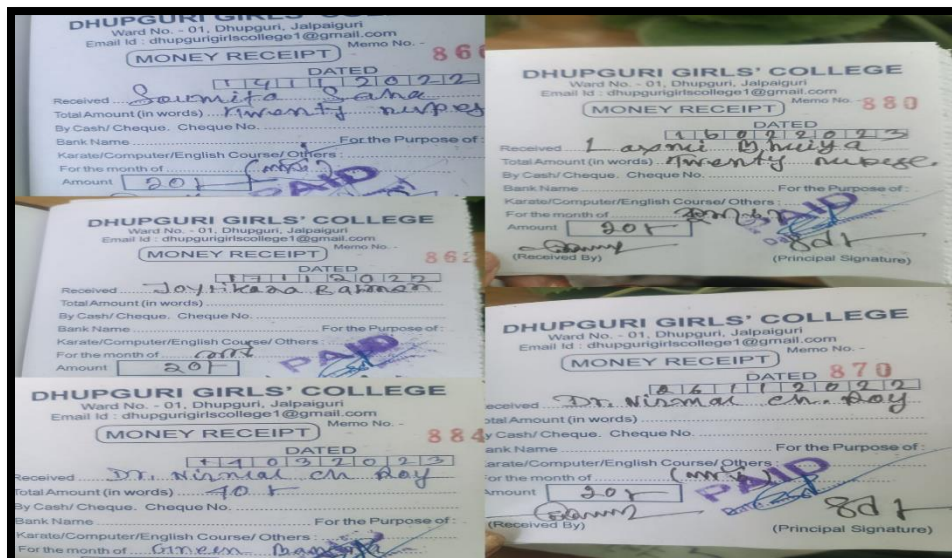 DHUPGURI GIRLS' COLLEGE
Ward No. - 01, Dhupguri, Jalpaiguri
Email Id : dhupgurigirlscollege1@gmail.com
Memo No. -
MONEY RECEIPT
DATED
14112022
Received Soumita Saha
Total Amount (in words) Twenty rupes
By Cash/ Cheque. Cheque No.
Bank Name For the Purpose of :
Karate/Computer/English Course/ Others :
For the month of
Amount 20/-
PAID
DHUPGURI GIRLS' COLLEGE
Ward No. - 01, Dhupguri, Jalpaiguri
Email Id : dhupgurigirlscollege1@gmail.com
Memo No. -
MONEY RECEIPT 862
DATED
17112022
Received Barman
Total Amount (in words)
By Cash/ Cheque. Cheque No.
Bank Name For the Purpose of :
Karate/Computer/English Course/ Others :
For the month of
Amount 20/-
PAID
DHUPGURI GIRLS' COLLEGE
Ward No. - 01, Dhupguri, Jalpaiguri
Email Id : dhupgurigirlscollege1@gmail.com
Memo No. -
MONEY RECEIPT 884
DATED
14032023
Received Dr. Nirmal ch Roy
Total Amount (in words)
By Cash/ Cheque. Cheque No.
Bank Name For the Purpose of :
Karate/Computer/English Course/ Others :
For the month of Green
DHUPGURI GIRLS' COLLEGE
Ward No. - 01, Dhupguri, Jalpaiguri
Email Id : dhupgurigirlscollege1@gmail.com
Memo No. - 880
MONEY RECEIPT
DATED
16022023
Received Laxmi Bhuiya
Total Amount (in words) Twenty
By Cash/ Cheque. Cheque No.
Bank Name For the Purpose of :
Karate/Computer/English Course/ Others :
For the month of
Amount 20/- PAID
Sd/-
(Received By) (Principal Signature)
DHUPGURI GIRLS' COLLEGE
Ward No. - 01, Dhupguri, Jalpaiguri
Email Id : dhupgurigirlscollege1@gmail.com
Memo No. -
MONEY RECEIPT
DATED 870
26112022
eceived Dr. Nirmal ch. Roy
otal Amount (in words)
y Cash/ Cheque. Cheque No.
ank Name For the Purpose of :
arate/Computer/English Course/ Others :
or the month of
mount 20/- PAID
Sd/-
(Received By) (Principal Signature)